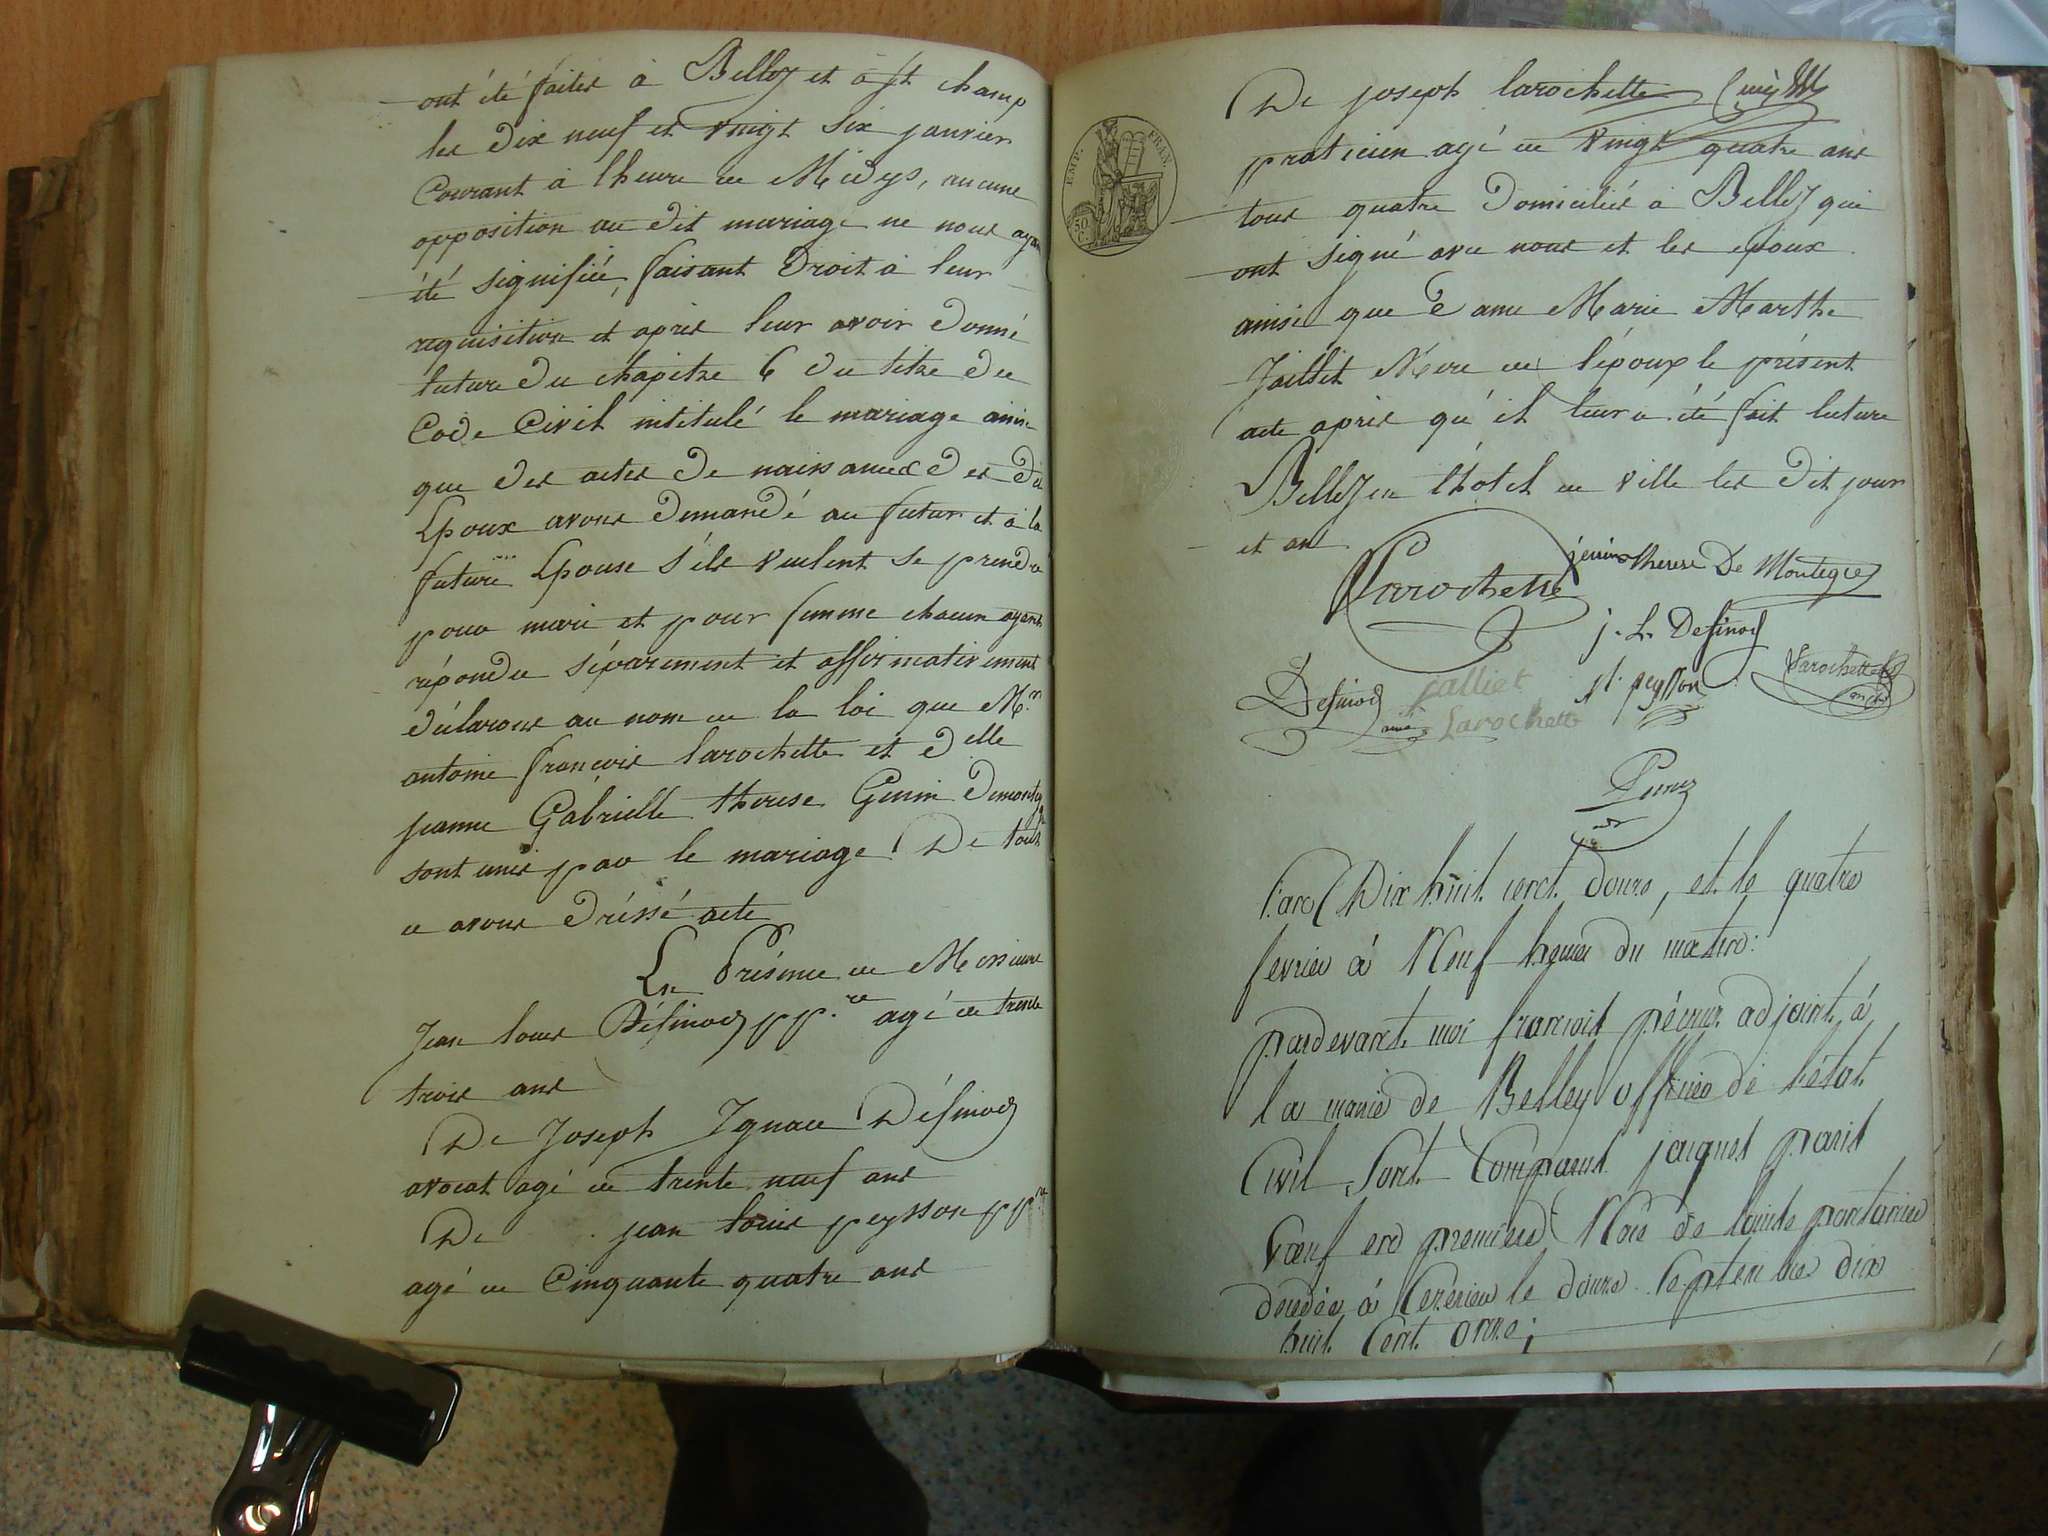 ont été faites à Belley et à st champ
les dix neuf et vingt six janvier
Courant à l'heure de Midy, aucune
opposition au dit mariage ne nous ayan
été signifiée, faisant droit à leur
requisition et après leur avoir donné
lecture du chapitre 6 du titre du
Code Civil intitulé le mariage ainsi
que des actes de naissance des dit
Epoux avons demandé au futur et à la
future Epouse s'ils veulent se prendre
pour mari et pour femme chacun ayant
répondu séparement et affirmativement
déclarons au nom de la loi que Mr.
antoine françois larochette et delle
jeanne Gabrielle therese Genin Demonteg
sont unis par le mariage. De tout
ce avons dréssé acte
En Présence de Messieurs
Jean louis Désinod pp.re agé de trente
trois ans
De Joseph Ignace Désinod
avocat agé de trente neuf ans
De jean louis peysson pp.re
agé de Cinquante quatre ans
EMP. FRAN.
50 C.
De joseph larochette
praticien agé de vingt quatre ans
tous quatre domiciliés à Belley qui
ont signé avec nous et les époux
ainsi que dame Marie Marthe
Jaillet Mère de l'époux le présent
acte après qu'il leur a été fait lecture
Belley en l'hotel de ville les dit jour
et an
Larochette therese De Montegre
j. L. Desinod
Desinod jalliet peysson Larochette
Larochette
l'an Dix huit cent douze, et le quatre
fevrier à Neuf heures du matin:
pardevant moi françois adjoint à
la mairie de Belley officier de l'état
Civil Sont Comparus jacques paris
veuf en premiere Noce de louise
decedée à Cezerieu le douze septembre dix
huit Cent onze;